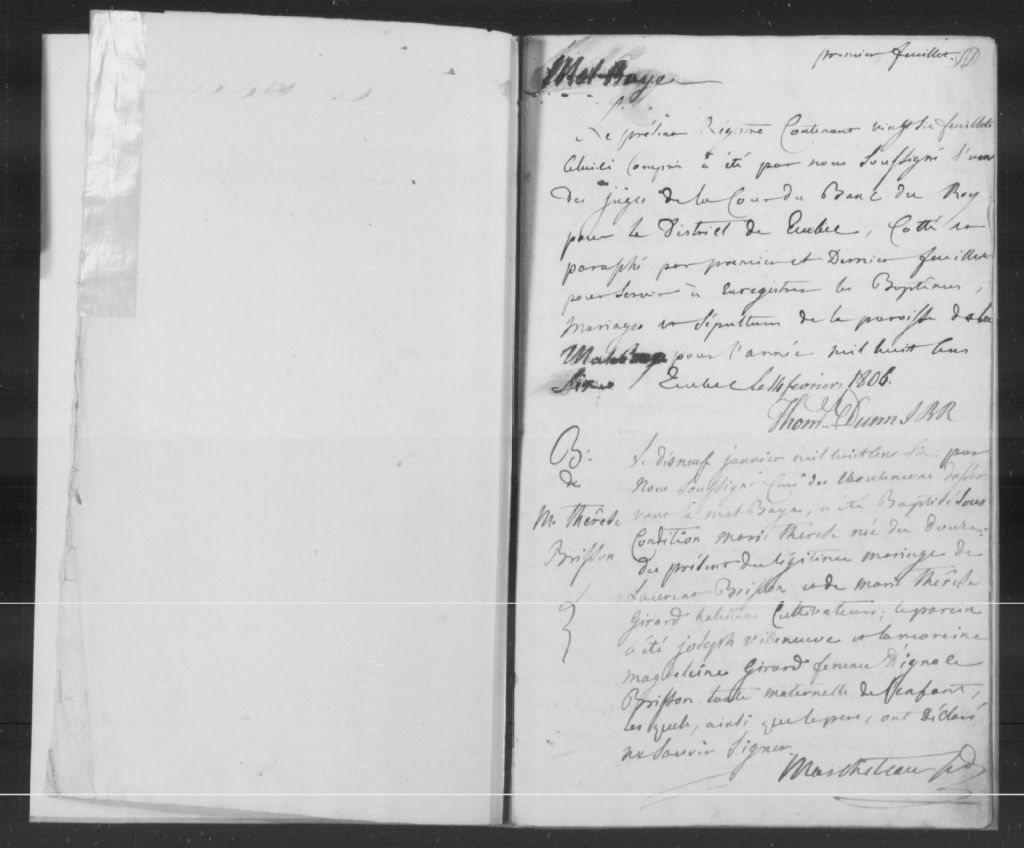 premier feuillet.
Mal Baye
Le présent Régistre Contenant vingt six feuillets
Celuici Compris à été par nous Soussigné l'un
des juges de la Cour du Banc du Roy
pour le District de Quebec, Cotté et
paraphé par premier et Dernier feuillet
pour Servir à Enregistrer les Baptêmes,
Mariages et Sépultures de la paroisse de la
Malebaye pour l'année mil huit Cens
Six Quebec le 14 fevrier 1806.
Thoms. Dunn J B R
B: Le disneuf janvier mil huit Cens Six par
de Nous Soussigné Curé des Eboulemens desser
M. Thérese vant la mal-Baye, a été Baptisée Sous
Brisson Condition marie therese née du Douze
du présent du légitime mariage de
Laurent Brisson et de marie thérese
Girard habitans Cultivateurs; le parein
a été joseph villeneuve et la mareine
magdeleine Girard femme d'ignace
Brisson, tante maternelle de l'enfant,
lesquels, ainsi que le pere, ont Déclaré
ne Savoir Signer